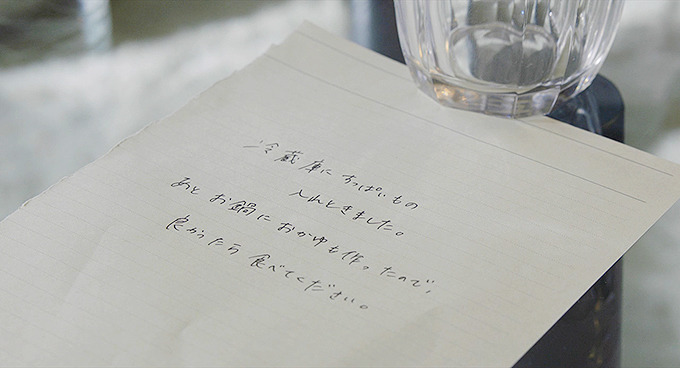 冷蔵庫にすっぱいもの
入れときました。
あと お鍋に おかゆも作ったので、
良かったら 食べてください。